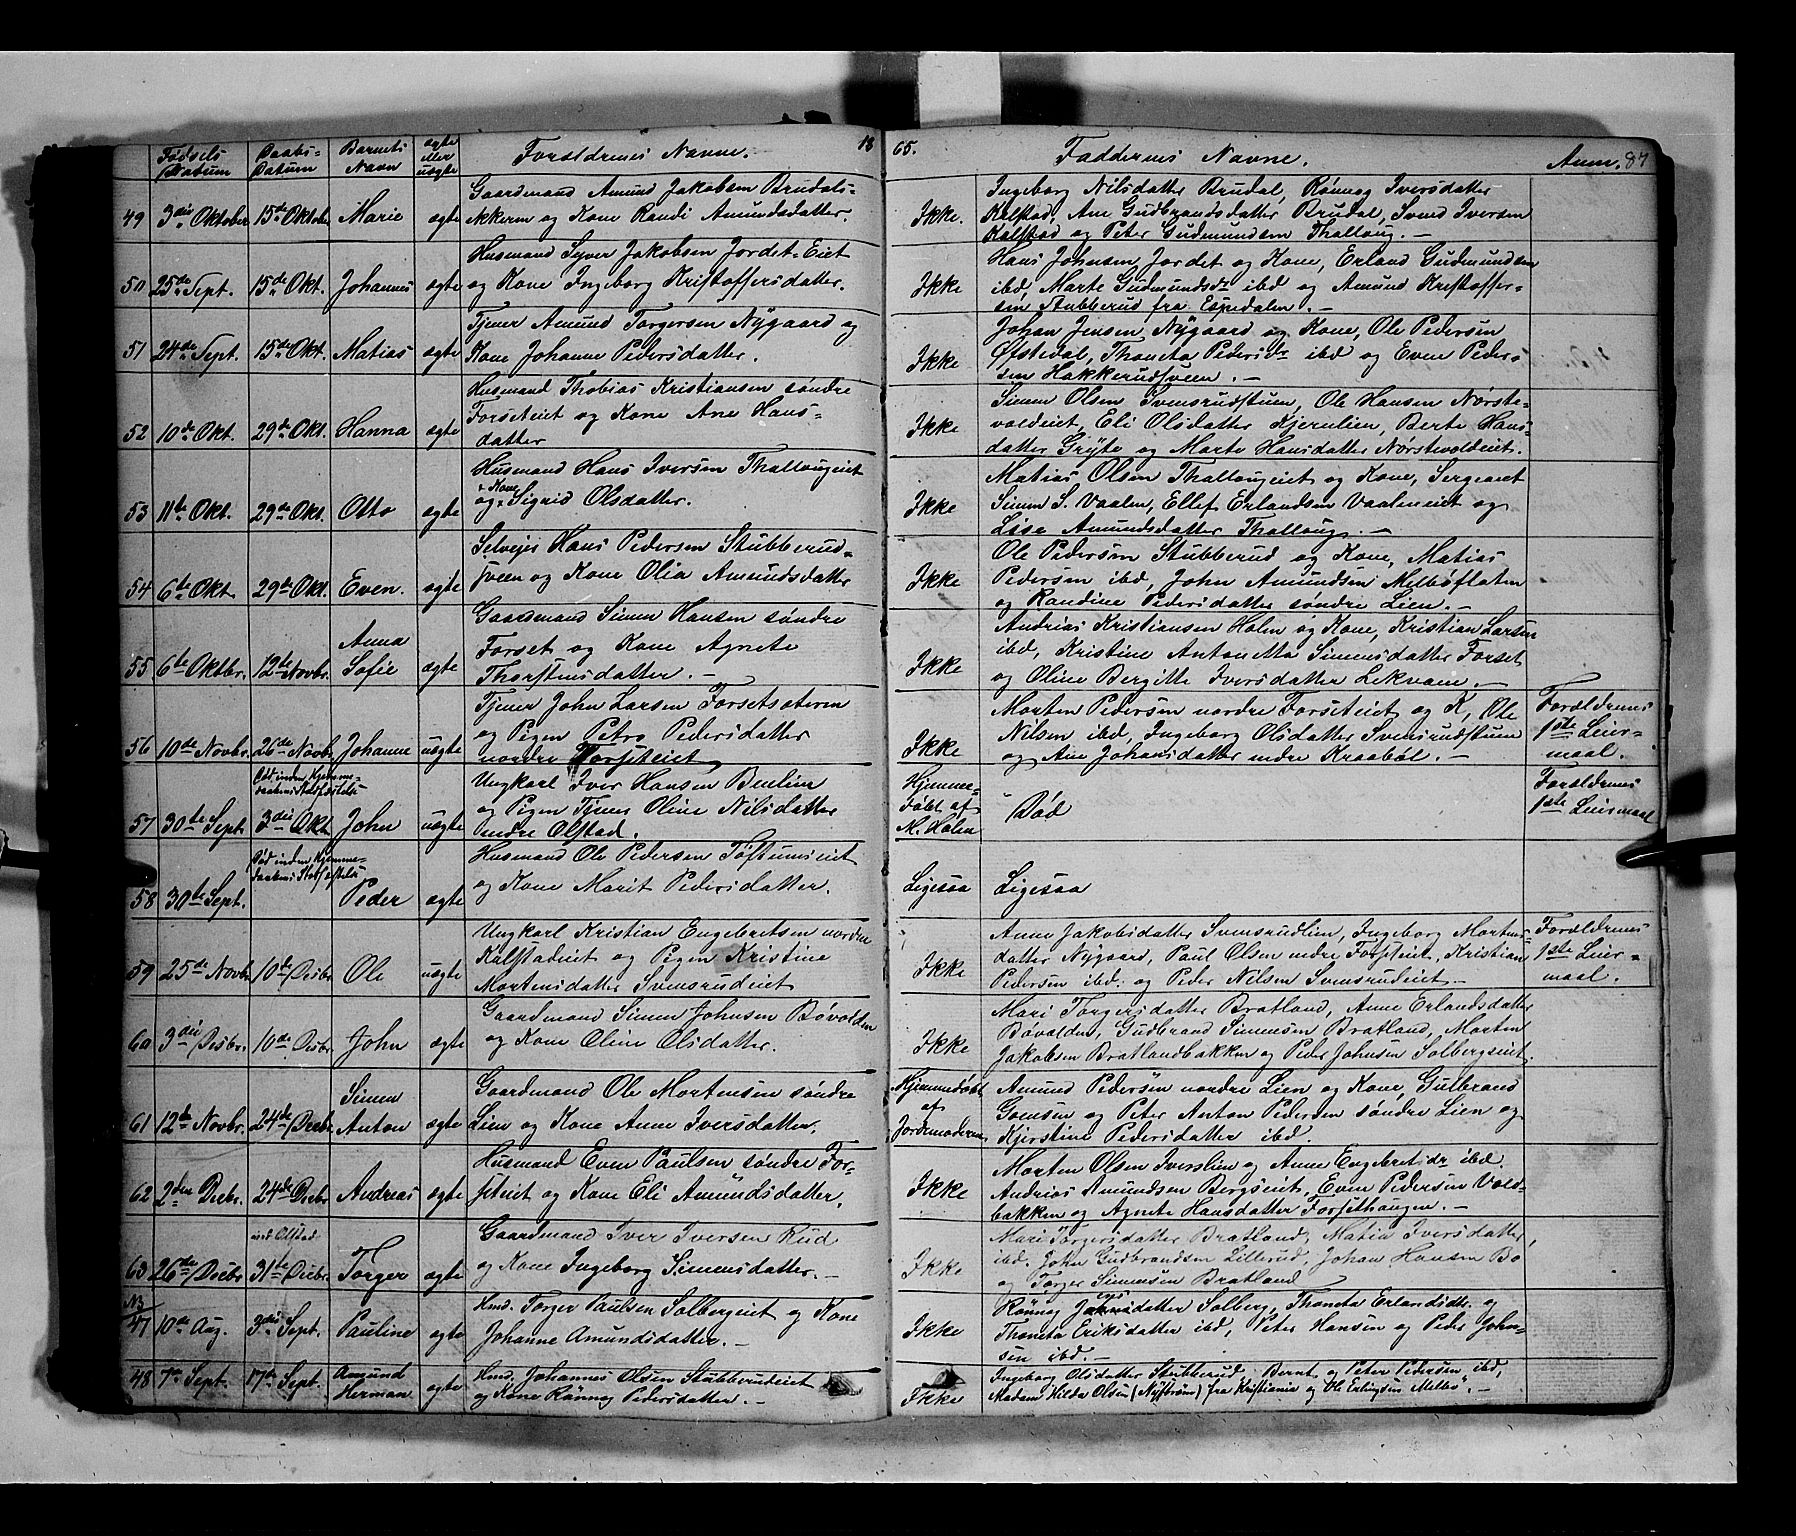 Fødsels Datum | Daabs-Datum | Barnets Navn | ægte eller uægte | Forældrenes Navne. | 18
65. | Faddernes Navne. | Anm. | 87
49 | 3die Oktober | 15de Oktober | Marie | ægte | Gaardmand Amund Jakobsen Brudals-
ækkeren og Kone Randi Amundsdatter.
Ikke. | Ingeborg Nilsdatter Brudal, Rønnog Iversdatter
Kalstad, Ane Gudbrandsdatter Brudal, Svend Iversen
Kalstad og Peter Gudmundsen Thalloug. –
50 | 25de Sept. | 15de Okt. | Johannes | ægte | Husmand Syver Jakobsen Jordet-Eiet
og Kone Ingeborg Kristoffersdatter.
Ikke | Hans Johnsen Jordet og Kone, Erland Gudmundsen
ibd, Marte Gudmundsdr ibd og Amund Kristoffer-
sen Stubberud fra Espedalen. –
51 | 24de Sept. | 15de Okt. | Matias | ægte | Tjener Amund Torgersen Nygaard og
Kone Johanne Pedersdatter.
Ikke | Johan Jensen Nygaard og Kone, Ole Pedersen
Øfstedal, Thoneta Pedersdr ibd og Even Peder-
sen Hakkerudsveen. –
52 | 10de Okt. | 29de Okt. | Hanna | ægte | Husmand Thobias Kristiansen søndre
Forseteiet og Kone Ane Hans-
datter
Ikke | Simen Olsen Svensrudstuen, Ole Hansen Nørste-
voldeiet, Eli Olsdatter Kjernlien, Berte Hans-
datter Gryte og Marte Hansdatter Nørstevoldeiet.
53 | 11te Okt. | 29de Okt. | Otto | ægte | Husmand Hans Iversen Thallougeiet
og Kone Sigrid Olsdatter.
Ikke | Matias Olsen Thallougeiet og Kone, Sergeant
Simen S. Vaalen, Ellef Erlandsen Vaaleneiet og
Lise Amundsdatter Thalloug. –
54 | 6te Okt. | 29de Okt. | Even. | ægte | Selveier Hans Pedersen Stubberud-
sveen og Kone Olia Amundsdatter
Ikke | Ole Pedersen Stubberud og Kone, Matias
Pedersen ibd, John Amundsen Melbøflaten
og Randine Pedersdatter søndre Lien. –
55 | 6te Oktbr. | 12te Novbr. | Anna Sofie | ægte | Gaardmand Simen Hansen søndre
Forset og Kone Agnete
Thorstensdatter. –
Ikke | Andreas Kristiansen Holm og Kone, Kristian Larsen
ibd, Kristine Antonetta Simensdatter Forset
og Oline Bergitte Iversdatter Lekvam. –
56 | 10de Novbr. | 26de Novbr. | Johanne | uægte | Tjener John Larsen Forsetsæteren
og Pigen Petra Pedersdatter
nordre Forseteiet
Ikke | Morten Pedersen nordre Forseteiet og K, Ole
Nilsen ibd, Ingeborg Olsdatter Svensrudstuen
og Ane Johansdatter nedre Kraabøl. – | Forældrenes
1ste Leier-
maal.
57 | 30de Sept. | Død inden Hjemme-
daabens Stadfæstelse
3die Okt | John | uægte | Ungkarl Iver Hansen Benlien
og Pigen Tjener Oline Nilsdatter
nedre Olstad.
Hjemme-
døbt af
M. Holen | Død | Forældrenes
1ste Leiermaal
58 | 30te Sept. | Død inden Hjemme-
daabens Stadfæstelse | Peder | ægte | Husmand Ole Pedersen Toftumseiet
og Kone Marit Pedersdatter.
Ligesaa | Ligesaa
59 | 25de Novbr | 10de Desbr | Ole | uægte | Ungkarl Kristian Engebretsen nordre
Kalstadeiet og Pigen Kristine
Mortensdatter Svensrudeiet
Ikke | Anne Jakobsdatter Svensrudlien, Ingeborg Mortens-
datter Nygaard, Paul Olsen nedre Forseteiet, Kristian
Pedersen ibd. og Peder Nilsen Svensrudeiet – | Forældrenes
1ste Leier-
maal.
60 | 3die Desbr. | 10de Desbr | John | ægte | Gaardmand Simen Johnsen Bøvolden
og Kone Oline Olsdatter.
Ikke | Mari Torgersdatter Bratland, Anne Erlandsdatter
Bøvolden, Gudbrand Simensen Bratland, Morten
Jakobsen Bratlandbakken og Peder Johnsen Solbergseiet.
61 | 12te Novbr. | 24de Desbr. | Simen Anton | ægte | Gaardmand Ole Mortensen søndre
Lien og Kone Anne Iversdatter.
Hjemmedøbt
af
Jordemoderen | Amund Pedersen nordre Lien og Kone, Gulbrand
Gomsen og Peter Anton Pedersen søndre Lien og
Kjerstine Pedersdatter ibd.
62 | 2den Desbr. | 24de Desbr | Andreas | ægte | Husmand Even Paulsen søndre For-
seteiet og Kone Eli Amundsdatter.
Ikke | Morten Olsen Iverslien og Anne Engebretsdr ibd.
Andreas Amundsen Bergseiet, Even Pedersen Vold-
bakken og Agnete Hansdatter Forsethaugen. –
63 | 26de Desbr. | ved Olstad
31te Desbr. | Torger | ægte | Gaardmand Iver Iversen Rud
og Kone Ingeborg Simensdatter. –
Ikke | Mari Torgersdatter Bratland, Matia Iversdatter,
ibd. John Gudbrandsen Lillerud, Johan Hansen Bø
og Torger Simensen Bratland
NB
47 | 10de Aug. | 3die Sept. | Pauline | ægte | Hmd. Torger Paulsen Solbergeiet og Kone
Johanne Amundsdatter. –
Ikke | Rønnog datter Solberg, Thoneta Erlandsdtr. og
Thoneta Eriksdatter ibd, Peter Hansen og Peder John-
sen ibd. –
48 | 7de Sept. | 17de Sept. | Amund Herman | ægte | Hmd. Johannes Olsen Stubberudeiet
og Kone Rønnog Pedersdatter. –
Ikke | Ingeborg Olsdatter Stubberud, Bernt og Peter Pedersen ibd,
Madam Hilda Olsen (Nystrøm) fra Kristiania og Ole Erlingsen Melbø. –